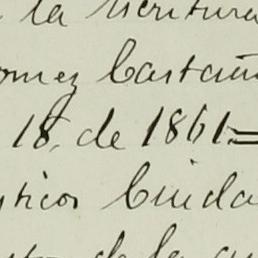 la escritura
omez Castañ
18, de 1861=
sticos Cuida
de la